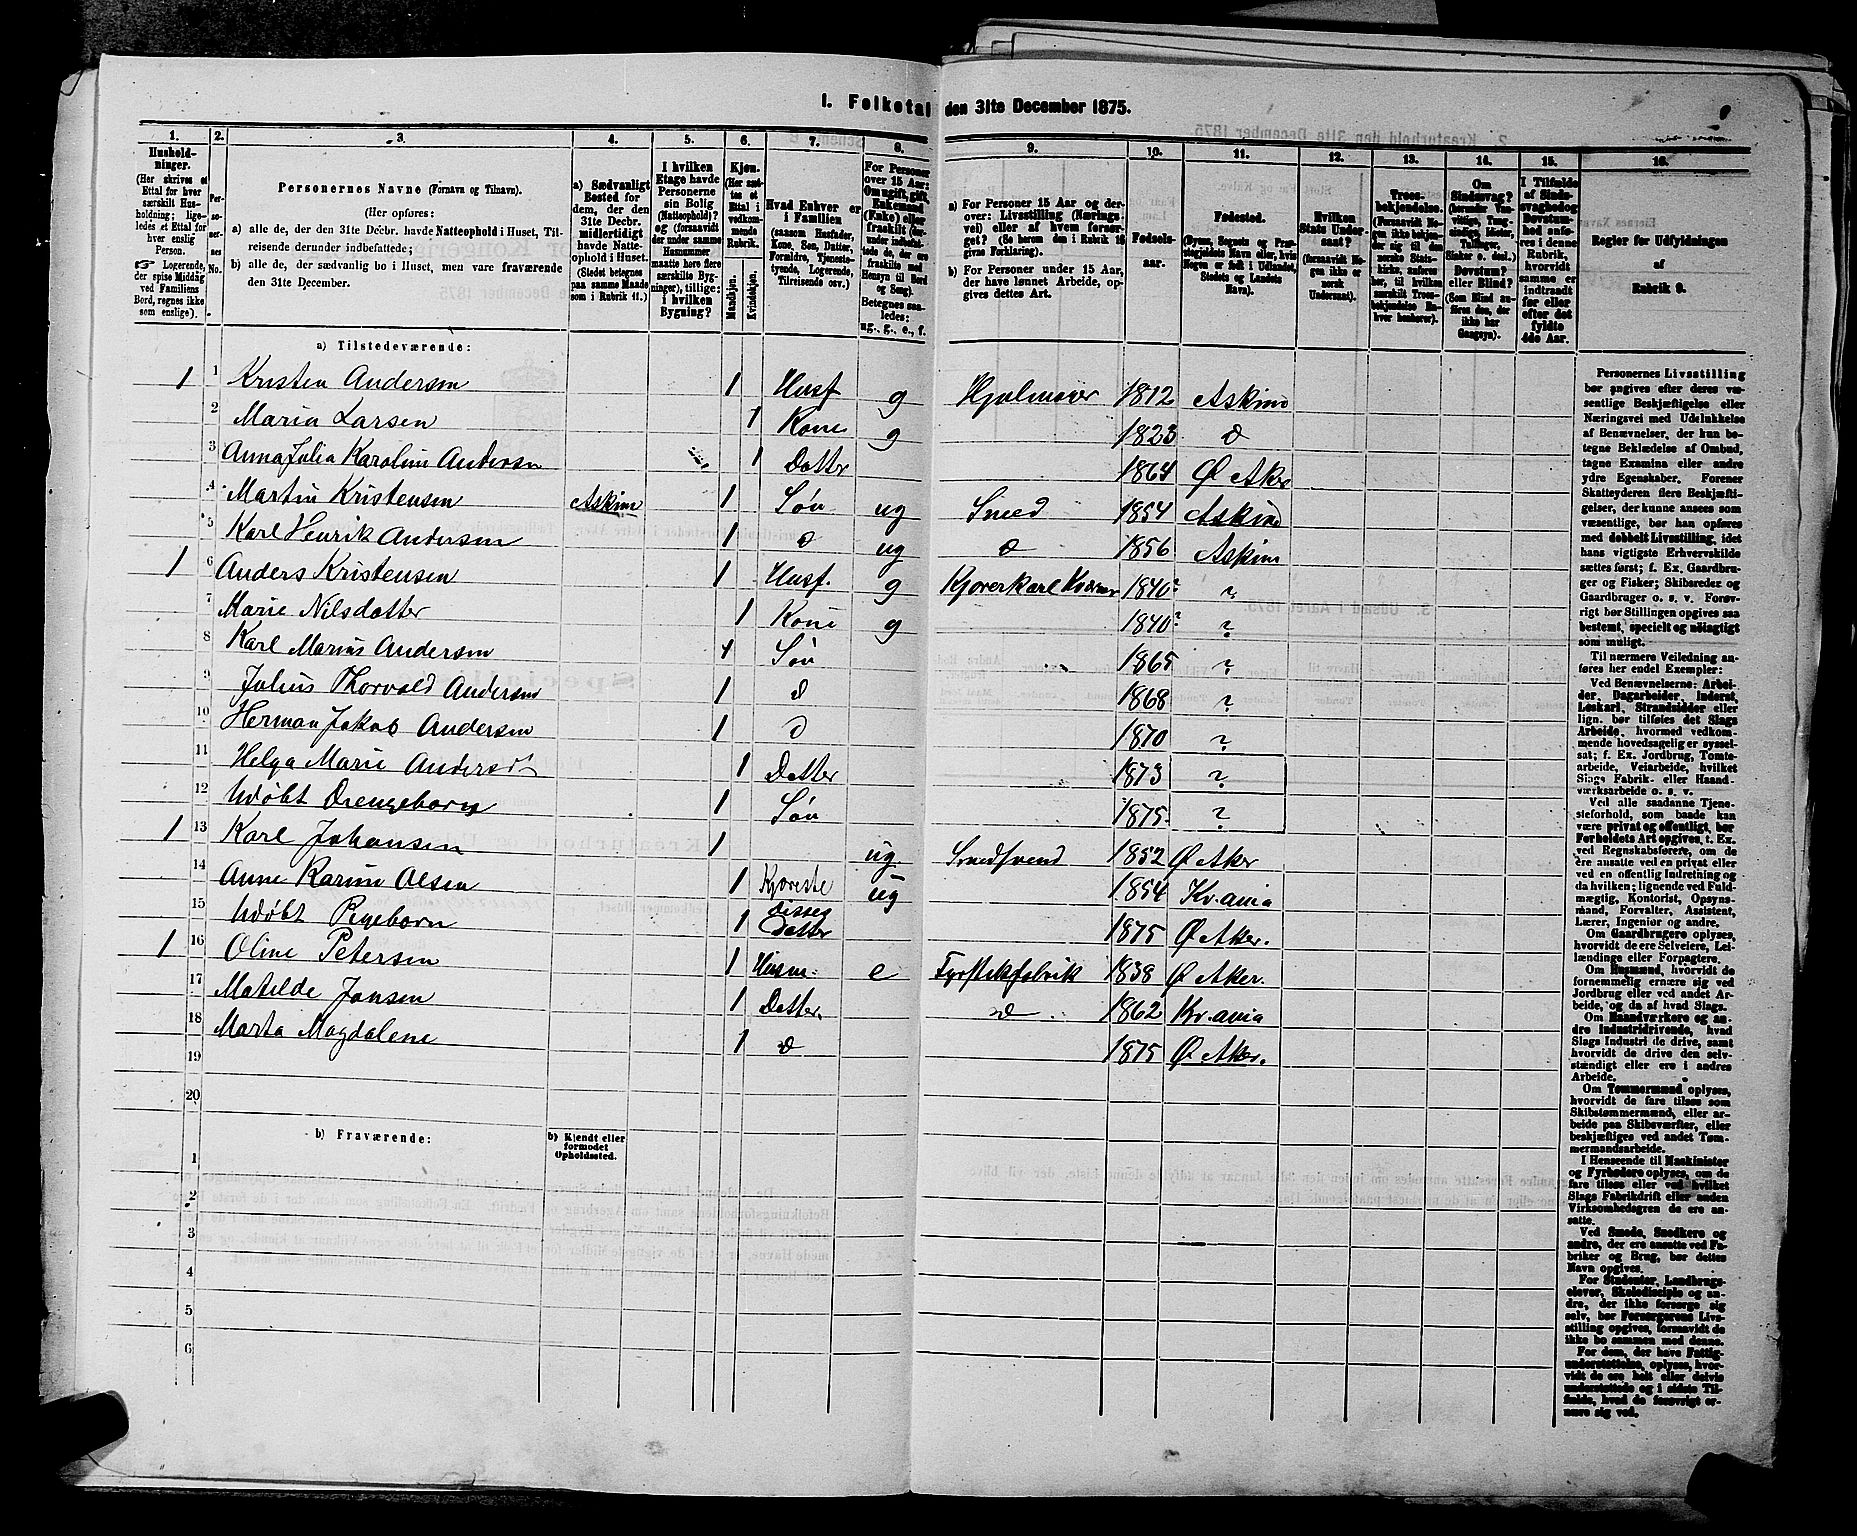 1. Folketal den 31te December 1875.
1. 2. 3. 4. 5. 6. 7. 8. 9. 10. 11. 12. 13. 14. 15. 16.
Husholdninger. (Her skrives et Ettal for hver særskilt Husholdning; ligeledes et Ettal for hver enslig Person.
☞ Logerende, der spise Middag ved Familiens Bord, regnes ikke som enslige).
Personernes No.
Personernes Navne (Fornavn og Tilnavn).
(Her opføres:
a) alle de, der den 31te Decbr. havde Natteophold i Huset, Tilreisende derunder indbefattede;
b) alle de, der sædvanlig bo i Huset, men vare fraværende den 31te December.
a) Sædvanligt Bosted for dem, der den 31te Decbr. midlertidigt havde Natteophold i Huset. (Stedet betegnes paa samme Maade som i Rubrik 11.)
I hvilken Etage havde Personerne sin Bolig (Natteophold)? og (forsaavidt der under samme Husnummer maatte høre flere særskilte Bygninger), tillige: i hvilken Bygning?
Kjøn. (Her sættes et Ettal i vedkommende Rubrik.
Mandkjøn.
Kvindekjøn.
Hvad Enhver er i Familien (saasom Husfader, Kone, Søn, Datter, Forældre, Tjenestetyende, Logerende, Tilreisende osv.)
For Personer over 15 Aar: Om ugift, gift, Enkemand (Enke) eller fraskilt
Betegnes saaledes: ug., g., e., f.
a) For Personer 15 Aar og derover: Livsstilling (Næringsvei) eller af hvem forsørget? (Se herom den i Rubrik 16 givne Forklaring).
b) For Personer under 15 Aar, der have lønnet Arbeide, opgives dettes Art.
Fødselsaar.
Fødested.
(Byens, Sognets og Præstegjeldets Navn eller, hvis Nogen er født i Udlandet, Stedets og Landets Navn).
Hvilken Stats Undersaat? (forsaavidt Nogen ikke er norsk Undersaat).
Troesbekjendelse. (Forsaavidt Nogen ikke bekjender sig til den norske Statskirke, anføres her, til hvilken særskilt Troesbekjendelse Enhver henhører).
Om Sindssvag? (herunder Vanvittige, Tungsindige, Idioter, Tullinger, Sinker o. desl.) Døvstum? eller Blind? (Som Blind anføres den, der ikke har Gangsyn).
I Tilfælde af Sindssvaghed og Døvstumhed anføres i denne Rubrik, hvorvidt samme er indtraadt før eller efter det fyldte 4de Aar.
Regler for Udfyldningen af Rubrik 9.
a) Tilstedeværende:
1 1 Kristen Andersen 1 Husf g Hjulmager 1812 Askim
2 Maria Larsen 1 Kone g 1823 d
3 Anna Julia Karoline Andersen 1 Datter 1864 Ø Aker
4 Martin Kristensen Askim 1 Søn ug Smed 1854 Askim
5 Karl Henrik Andersen 1 d ug d 1856 Askim
1 6 Anders Kristensen 1 Husf. g Kjørerkarl 1840? ?
7 Marie Nilsdatter 1 Kone g 1840? ?
8 Karl Marius Andersen 1 Søn 1865 ?
9 Julius Thorvald Andersen 1 d 1868 ?
10 Herman Jakob Andersen 1 d 1870 ?
11 Helga Marie Andersen 1 Datter 1873 ?
12 Udøbt Drengebarn 1 Søn 1875 ?
1 13 Karl Johansen 1 ug. Smedsvend 1852 Ø Aker
14 Anne Karine Olsen 1 Kjæreste ug 1854 Kr.ania
15 Udøbt Pigebarn 1 disses Datter 1875 Ø Aker.
1 16 Oline Petersen 1 Husm. e Fyrstikfabrik 1838 Ø Aker.
17 Matilde Jansen 1 Datter. d 1862 Kr.ania
18 Marta Magdalene 1 d 1875 Ø Aker.
19
20
b) Fraværende:
b) Kjendt eller formodet Opholdssted.
1
2
3
4
5
6
Personernes Livsstilling
bør angives efter deres væsentlige Beskjæftigelse eller
Næringsvei med Udelukkelse
af Benævnelser, der kun betegne Beklædelse af Ombud,
tagne Examina eller andre
ydre Egenskaber. Forener
Skatteyderen flere Beskjæftigelser, der kunne ansees som
væsentlige, bør han opføres
med dobbelt Livsstilling, idet
hans vigtigste Erhvervskilde
sættes først; f. Ex. Gaardbruger og Fisker; Skibsreder og
Gaardbruger o. s. v. Forøvrigt bør Stillingen opgives saa
bestemt, specielt og nøiagtigt
som muligt.
Til nærmere Veiledning anføres her endel Exempler:
Ved Benævnelserne: Arbeider, Dagarbeider, Inderst,
Løskarl, Strandsidder eller
lign. bør tilføies det Slags
Arbeide, hvormed vedkommende hovedsagelig er sysselsat; f. Ex. Jordbrug, Tomtearbeide, Veiarbeide, hvilket
Slags Fabrik- eller Haandværksarbeide o. s. v.
Ved alle saadanne Tjenesteforhold, som baade kan
være privat og offentligt, bør
Forholdets Art opgives, t. Ex.
ved Regnskabsførere, om de
ere ansatte ved en privat eller
ved en offentlig Indretning og
da hvilken; lignende ved Fuldmægtig, Kontorist, Opsynsmand, Forvalter, Assistent,
Lærer, Ingeniør og andre.
Om Gaardbrugere oplyses,
hvorvidt de ere Selveiere, Leilændinge eller Forpagtere.
Om Husmænd, hvorvidt de
fornemmelig ernære sig ved
Jordbrug eller ved andet Arbeide, og da af hvad Slags.
Om Haandværkere og andre Industridrivende, hvad
Slags Industri de drive, samt
hvorvidt de drive den selvstændigt eller ere i andres
Arbeide.
Om Tømmermænd oplyses,
hvorvidt de fare tilsøs som
Skibstømmermænd, eller arbeide paa Skibsværfter, eller
beskjæftiges ved andet Tømmermandsarbeide.
I Henseende til Maskinister
og Fyrbødere oplyses, om de
fare tilsøs eller ved hvilket
Slags Fabrikdrift eller anden
Virksomhedsgren de ere ansatte.
Ved Smede, Snedkere og
andre, der ere ansatte ved Fabriker og Brug, bør dettes
Navn opgives.
For Studenter, Landbrugselever, Skoledisciple og andre, der ikke forsørge sig
selv, bør Forsørgerens Livsstilling opgives, forsaavidt de
ikke bo sammen med denne.
For dem, der have Fattigunderstøttelse, oplyses, hvorvidt de ere helt eller delvis
understøttede og i sidste Tilfælde, hvad de forøvrigt ernære sig ved.